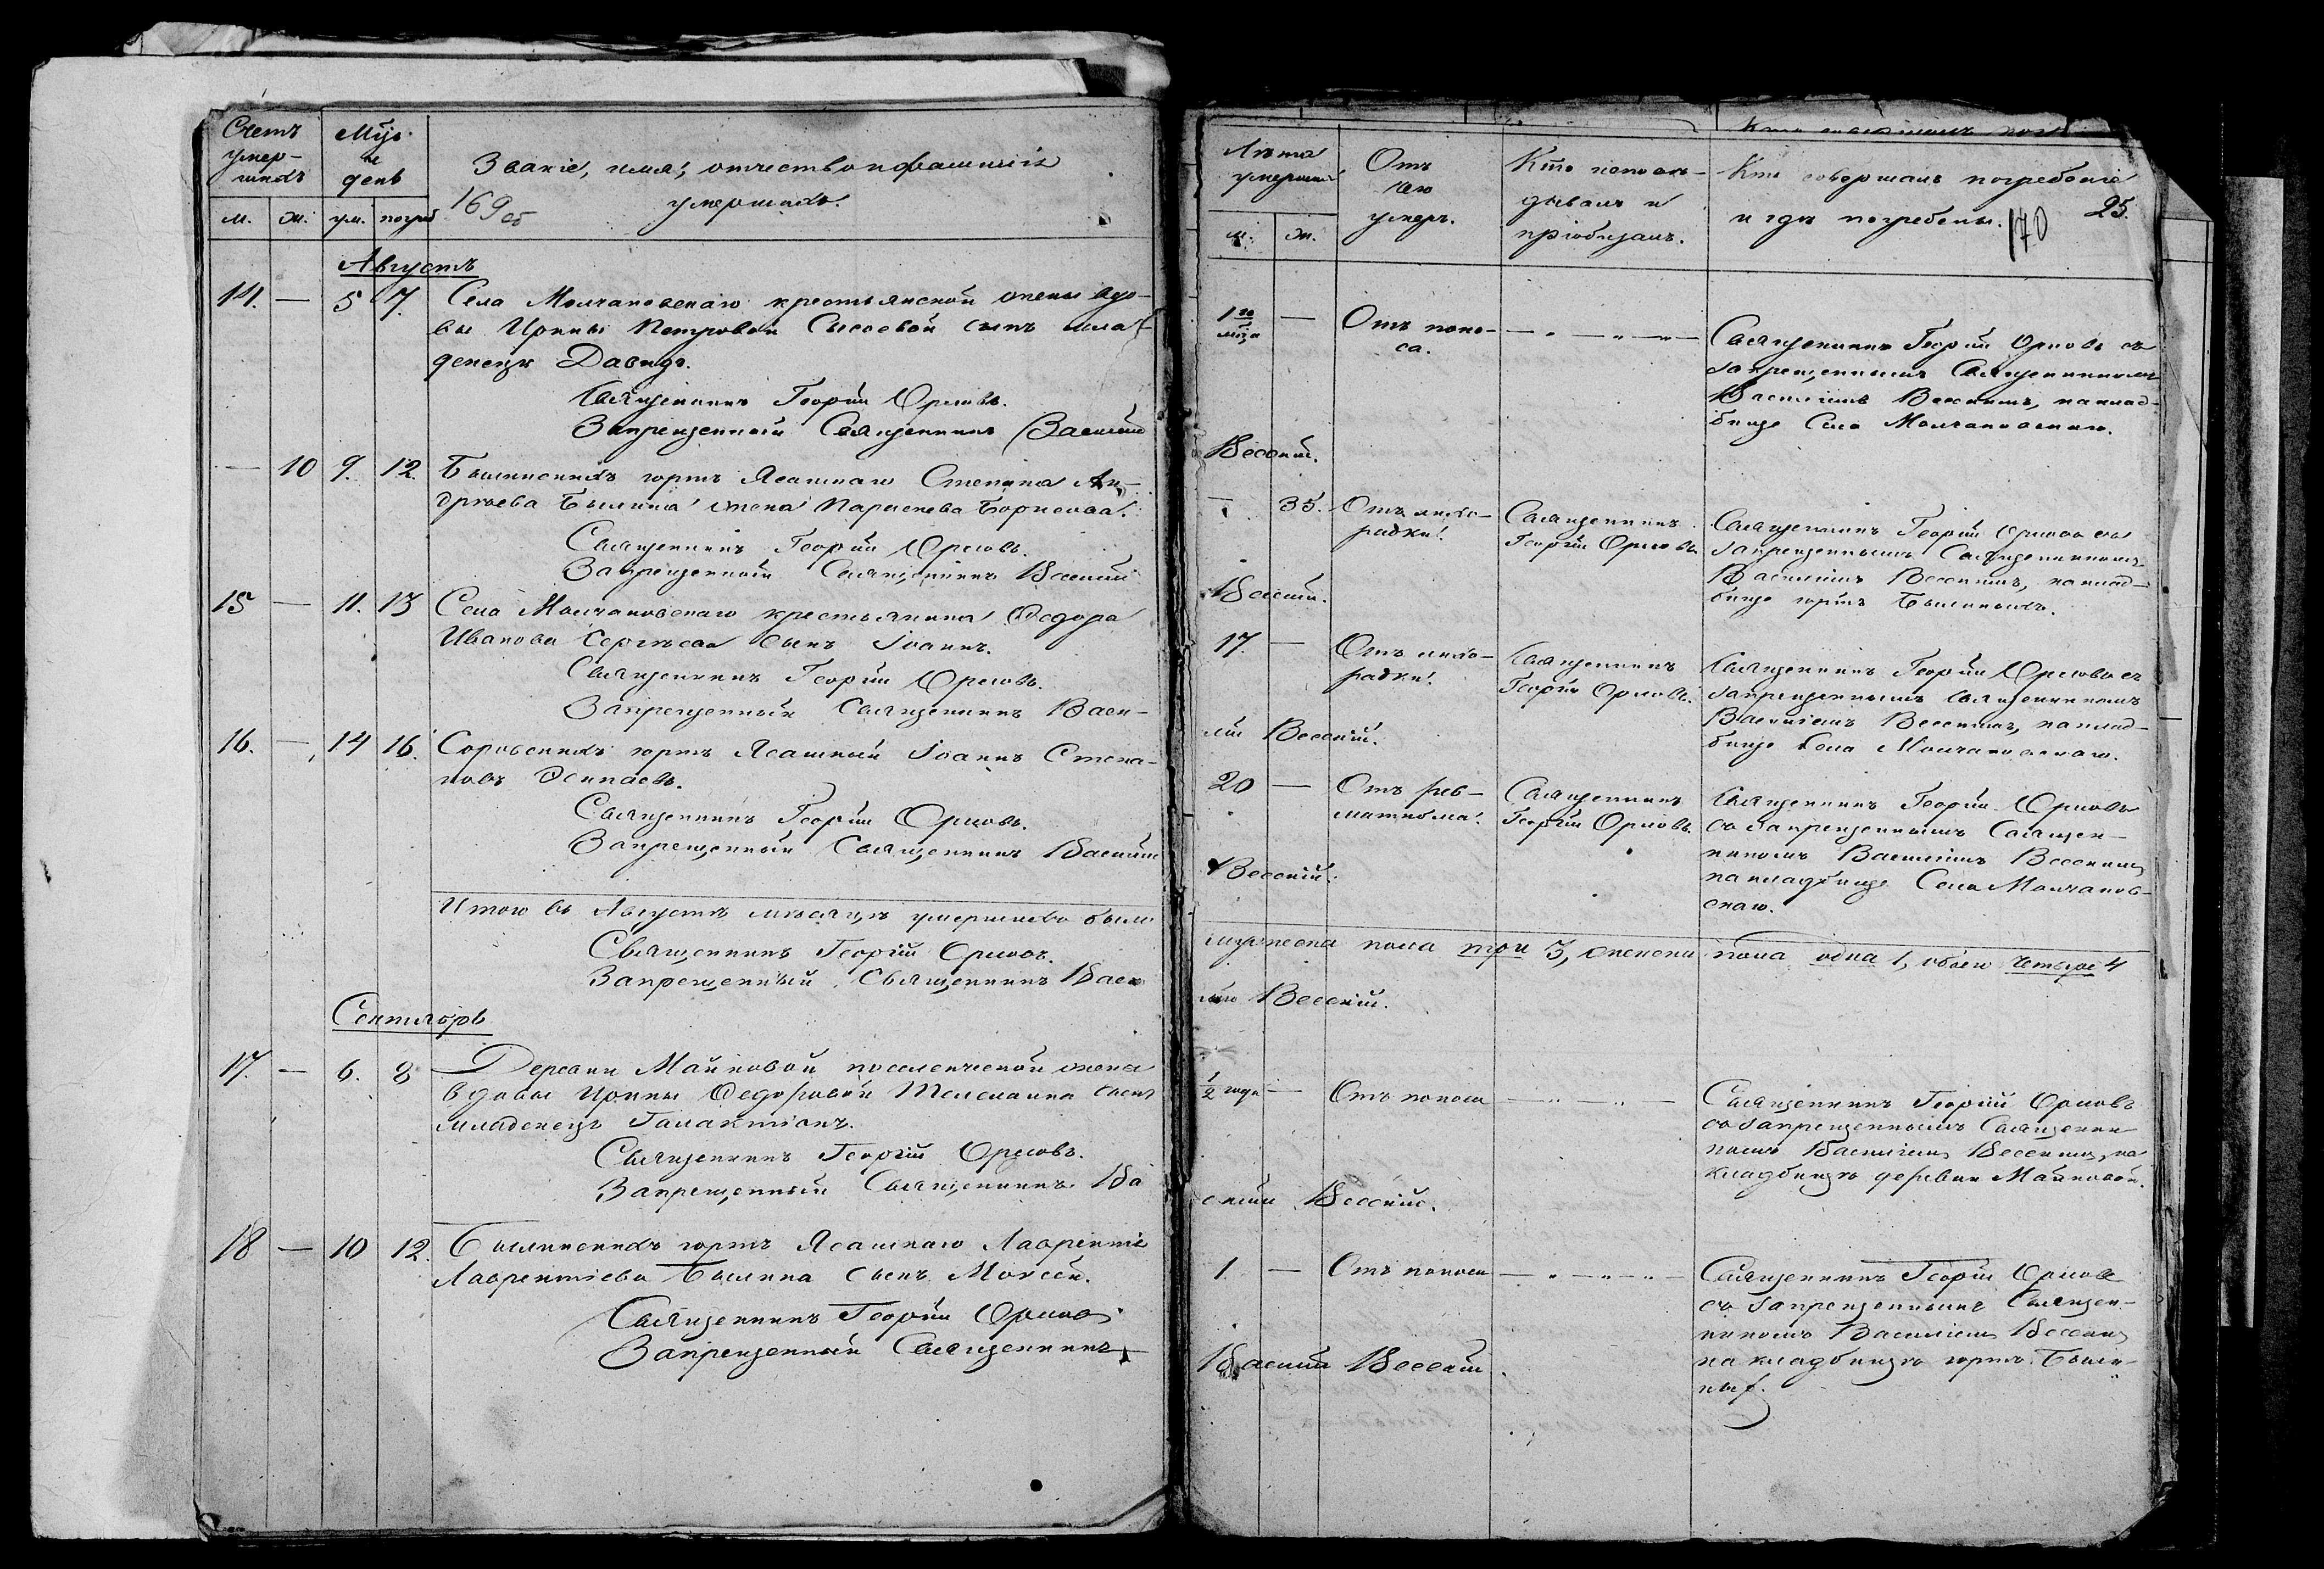 Счетъ умер-шихъ
Мцъ и день
Званіе, имя, отчество и фамилія
умершихъ.
169 об
м. ж. ум. погреб
Августъ
14. — 5 7. Села Молчановскаго крестьянской жены вдо-
вы Ирины Петровой Сысоевой сынъ мла-
денецъ Давидъ.
Священникъ Георгій Орловъ.
Запрещенный Священникъ Василій
— 10 9. 12. Былинскихъ юртъ Ясашнаго Степана Ан-
дреева Былина жена Параскева Борисова.
Священникъ Георгій Орловъ.
Запрещенный Священникъ Василій
15 — 11. 13 Села Молчановскаго крестьянина Ѳедора
Иванова Сергѣева сынъ Іоаннъ.
Священникъ Георгій Орловъ.
Запрещенный Священникъ Васи-
16. — 14 16. юртъ Ясашный Іоаннъ Степа-
новъ
Священникъ Георгій Орловъ.
Запрещенный Священникъ Василій
Итого въ Августѣ мѣсяцѣ умершихъ было
Священникъ Георгій Орловъ.
Запрещенный Священникъ Васи
Сентябрь
17. — 6. 8 Деревни Майковой поселенческой жены
вдовы Ирины Ѳедоровой сынъ
младенецъ Галактіонъ.
Священникъ Георгій Орловъ.
Запрещенный Священникъ Ва
18 — 10 12. Былинскихъ юртъ Ясашнаго Лаврентія
Лаврентіева Былина сынъ Моисей.
Священникъ Георгій Орловъ
Запрещенный Священникъ
Лѣта умершаго
Отъ чего умеръ.
Кто исповѣ-дывалъ и пріобщалъ.
Кто совершалъ погребеніе
и гдѣ погребены. 170 25.
м. ж.
1го мѣца — Отъ поно-
са.
Священникъ Георгій Орловъ съ
запрещеннымъ Священникомъ
Василіемъ Вессскимъ, на клад-
бище Села Молчановскаго.
Весскій.
— 35. Отъ лихо-
радки. Священникъ
Георгій Орловъ
Священникъ Георгій Орловъ съ
запрещеннымъ Священникомъ
Василіемъ Весскимъ, на клад-
бище юртъ Былинскихъ.
Весскій.
17. — Отъ лихо-
радки. Священникъ
Георгій Орловъ.
Священникъ Георгій Орловъ съ
запрещеннымъ Священникомъ
Василіемъ Весскимъ, на клад-
бище Села Молчановскаго.
лій Весскій.
20 — Отъ рев-
матизма. Священникъ
Георгій Орловъ.
Священникъ Георгій Орловъ
съ запрещеннымъ Священ-
никомъ Василіемъ Весскимъ
на кладбище Села Молчанов-
скаго.
Весскій.
мужеска пола три 3, женска пола одна 1, обоего четыре 4
лій Весскій.
1/2 года — Отъ поноса
Священникъ Георгій Орловъ
съ запрещеннымъ Священни
комъ Василіемъ Весскимъ, на
кладбищѣ деревни Майковой.
силій Весскій.
1. — Отъ поноса
Священникъ Георгій Орловъ
съ запрещеннымъ Священ-
никомъ Василіемъ Весским
на кладбищѣ юртъ Былин-
ныхъ.
Василій Весскій